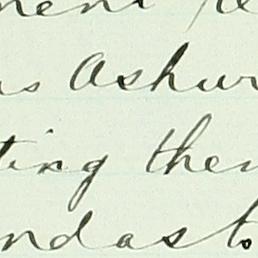 ment
as Ashur
ting then
and as to